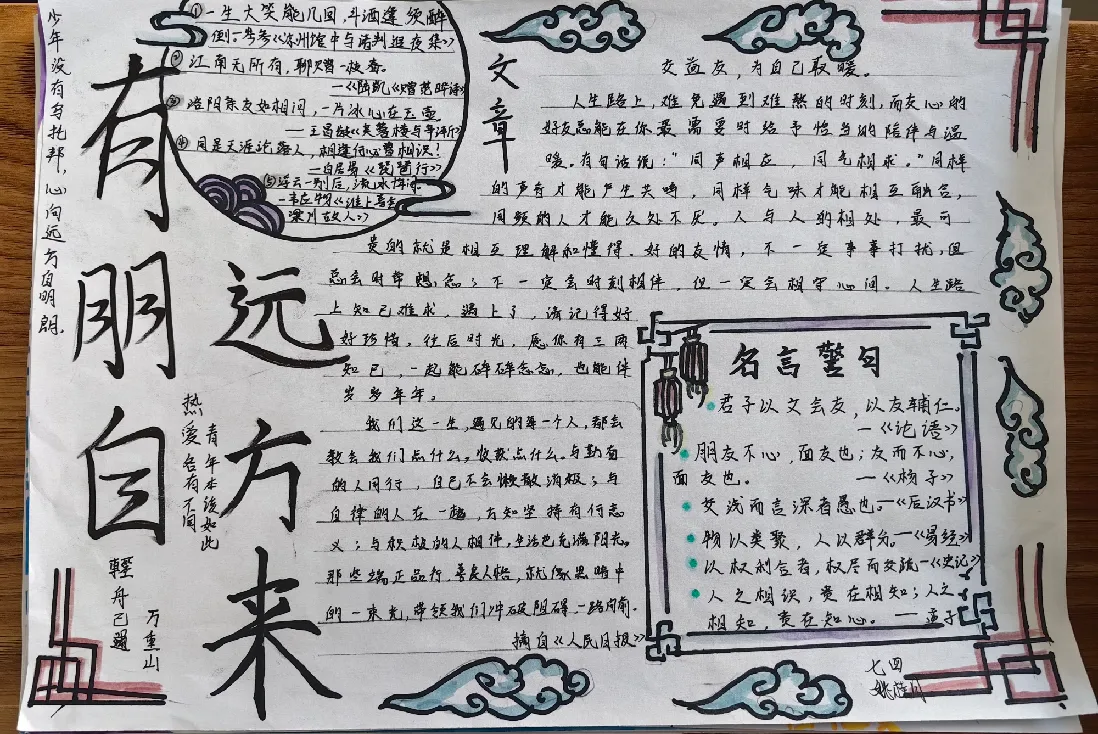 少年没有乌托邦，心向远方自明朗。
有朋自
远方来
热爱各有不同
青年本该如此
輕舟已過
万重山
①一生大笑能几回，斗酒逢须醉
倒。—岑参《凉州馆中与诸判逛夜集》
② 江南无所有，聊赠一枝春。
—《陆凯《赠范晔诗》
③ 洛阳亲友如相问，一片冰心在玉壶
—王昌龄《芙蓉楼与辛渐》
④ 同是天涯沦落人，相逢何必曾相识！
—白居易《琵琶行》
⑤浮云一别后，流水十年间
—韦应物《淮上喜会
梁川故人》
文章
交益友，为自己取暖。
人生路上，难免遇到难熬的时刻，而知心的
好友总能在你最需要时给予恰当的陪伴与温
暖。有句话说："同声相应 同气相求。"同样
的声音才能产生共鸣，同样气味才能相互融合，
同频的人才能久处不厌。人与人的相处，最可
贵的就是相互理解和懂得。好的友情，不一定事事打扰，但
总会时常想念；不一定会时刻相伴，但一定会相守心间。人生路
上知己难求，遇上了，请记得好
好珍惜，往后时光，愿你有三两
知己，一起能碎碎念念，也能伴
岁岁年年。
我们这一生，遇见的每一个人，都会
教会我们点什么，收获点什么。与勤奋
的人同行，自己不会懒散消极；与
自律的人在一起，方知坚持有何意
义；与积极的人相伴，生活也充满阳光。
那些端正品行、善良人格，就像黑暗中
的一束光，带领我们冲破阻碍，一路向前。
摘自《人民日报》
名言警句
君子以文会友，以友辅仁。
—《论语》
朋友不心，面友也；友而不心，
面友也。 —《杨子》
交浅而言深者愚也—《后汉书》
物以类聚，人以群分。—《易经》
以权利合者，权尽而交疏—《史记》
人之相识，贵在相知；人之
相知，贵在知心。 —孟子
七四